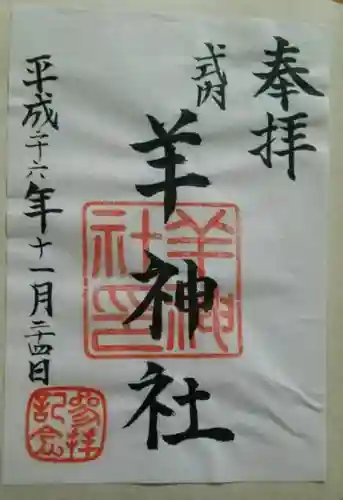 奉拝
式内
羊神社
羊神社印
平成二十六年十一月二十四日
参拝記念